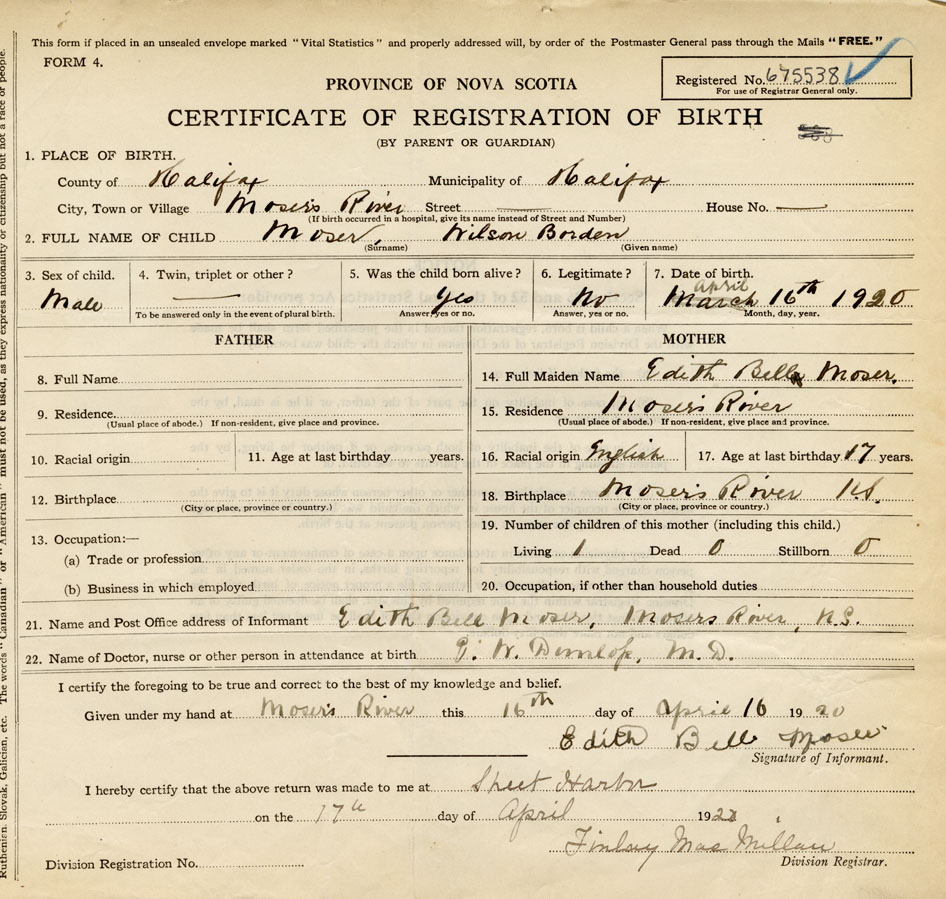 This form if placed in an unsealed envelope marked "Vital Statistics" and properly addressed will, by order of the Postmaster General pass through the Mails "FREE."
FORM 4.
Registered No. 675538
For use of Registrar General only.
PROVINCE OF NOVA SCOTIA
CERTIFICATE OF REGISTRATION OF BIRTH
(BY PARENT OR GUARDIAN)
1. PLACE OF BIRTH.
County of Halifax Municipality of Halifax
City, Town or Village Moser's River Street House No.
(If birth occurred in a hospital, give its name instead of Street and Number)
2. FULL NAME OF CHILD Moser, Wilson Borden
(Surname) (Given name)
3. Sex of child. 4. Twin, triplet or other? 5. Was the child born alive? 6. Legitimate? 7. Date of birth.
April
Male Yes No March 16th 1920
To be answered only in the event of plural birth. Answer, yes or no. Answer, yes or no. Month, day, year.
FATHER
8. Full Name
9. Residence.
(Usual place of abode.) If non-resident, give place and province.
10. Racial origin 11. Age at last birthday years.
12. Birthplace
(City or place, province or country.)
13. Occupation:—
(a) Trade or profession
(b) Business in which employed
MOTHER
14. Full Maiden Name Edith Bell Moser.
15. Residence Moser's River
(Usual place of abode.) If non-resident, give place and province.
16. Racial origin English 17. Age at last birthday 17 years.
18. Birthplace Moser's River
(City or place, province or country.)
19. Number of children of this mother (including this child.)
Living 1 Dead 0 Stillborn 0
20. Occupation, if other than household duties
21. Name and Post Office address of Informant Edith Bell Moser, Mosers River, N.S.
22. Name of Doctor, nurse or other person in attendance at birth M.D.
I certify the foregoing to be true and correct to the best of my knowledge and belief.
Given under my hand at Moser's River this 16th day of April 16 1920
Edith Bell Moser
Signature of Informant.
I hereby certify that the above return was made to me at Sheet Harbor
on the 17th day of April 19
Finlay Mac Millan
Division Registrar.
Division Registration No.
Ruthenian, Slovak, Galician, etc. The words "Canadian" or "American" must not be used, as they express nationality or citizenship but not a race or people.